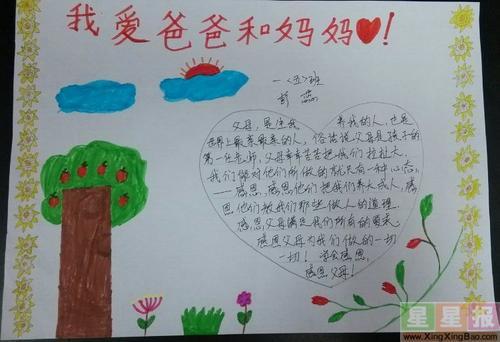 我爱爸爸和妈妈❤!
一〈五〉班
彭蕊
父母,是生我 养我的人,也是
世界上最亲最亲的人,俗话说父母是孩子的
第一任老师,父母辛辛苦苦把我们拉扯大,
我们能对他们所做的就只有一种心态,
——感恩,感恩他们把我们养大成人,感
恩他们教我们那些做人的道理,
感恩父母满足我们所有的要求。
感恩父母为我们做的一切
一切!学会感恩,
感恩父母!
星星报
www.XingXingBao.com